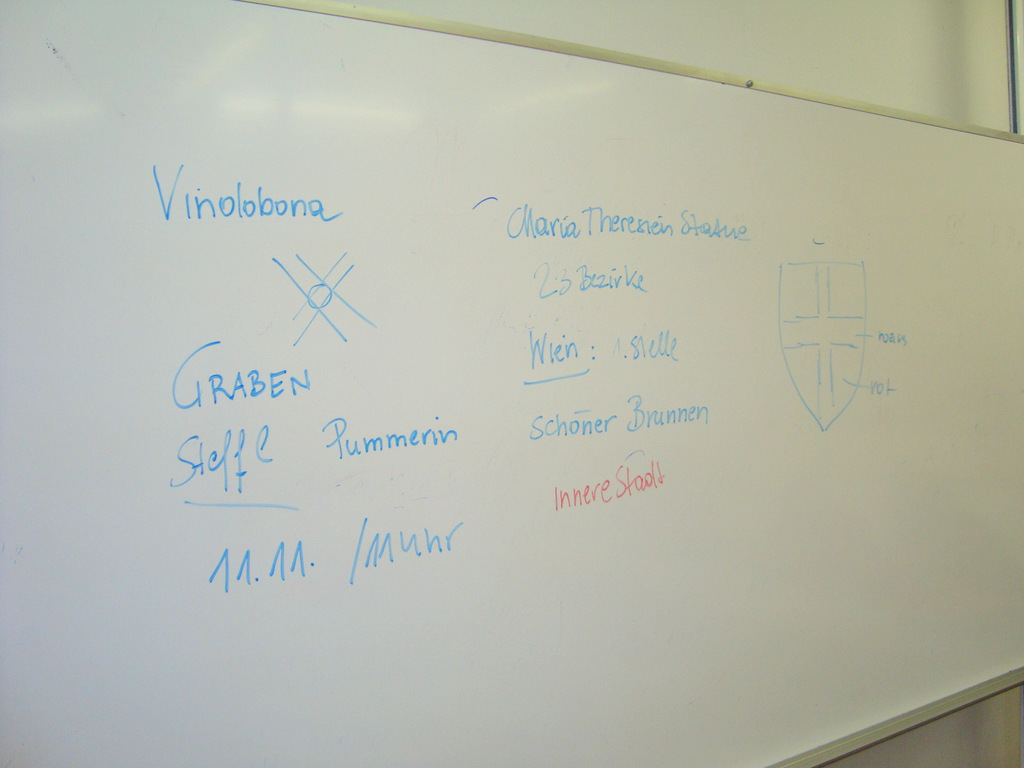 Vinolobona
GRABEN
Steffl Pummerin
11.11. /11 Uhr
Maria Theresien Statue
23 Bezirke
Wien: 1. Stelle
schöner Brunnen
Innere Stadt
rot